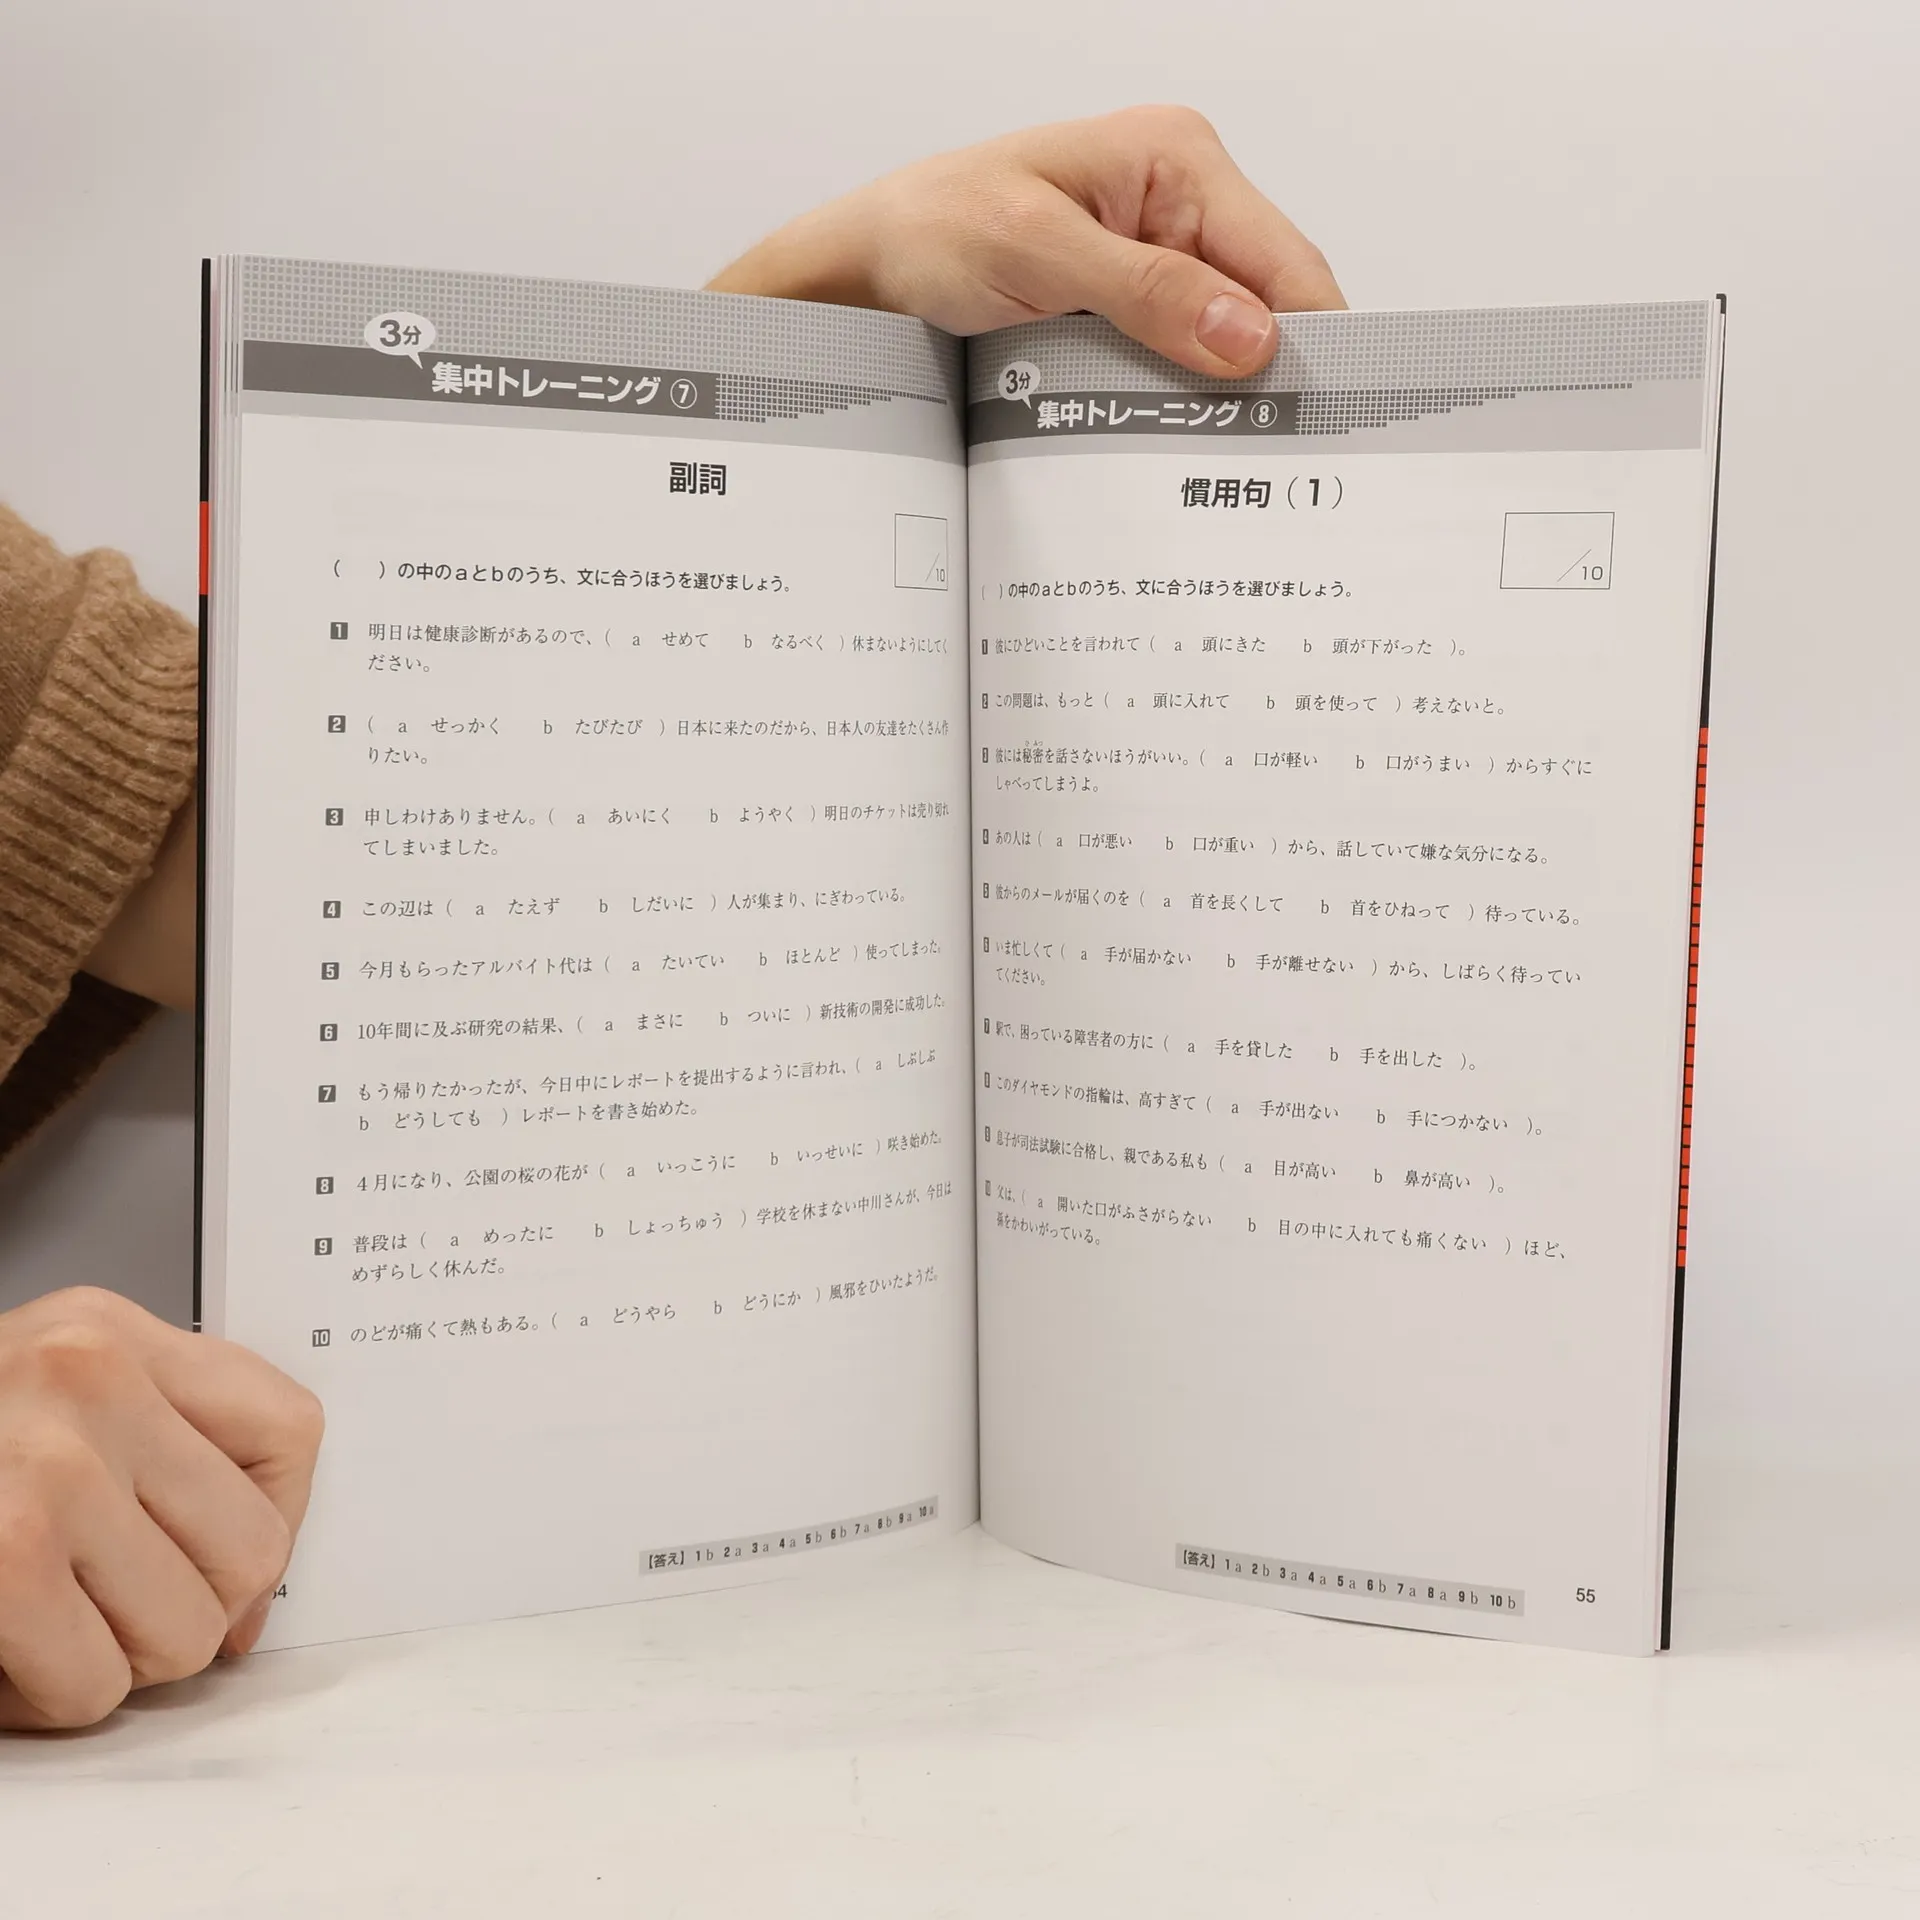 3分
集中トレーニング⑦
副詞
/10
(　　)の中のaとbのうち、文に合うほうを選びましょう。
1 明日は健康診断があるので、(　a　せめて　　b　なるべく　)休まないようにしてく
ださい。
2 (　a　せっかく　　b　たびたび　)日本に来たのだから、日本人の友達をたくさん作
りたい。
3 申しわけありません。(　a　あいにく　　b　ようやく　)明日のチケットは売り切れ
てしまいました。
4 この辺は(　a　たえず　　b　しだいに　)人が集まり、にぎわっている。
5 今月もらったアルバイト代は(　a　たいてい　　b　ほとんど　)使ってしまった。
6 10年間に及ぶ研究の結果、(　a　まさに　　b　ついに　)新技術の開発に成功した。
7 もう帰りたかったが、今日中にレポートを提出するように言われ、(　a　しぶしぶ
b　どうしても　)レポートを書き始めた。
8 4月になり、公園の桜の花が(　a　いっこうに　　b　いっせいに　)咲き始めた。
9 普段は(　a　めったに　　b　しょっちゅう　)学校を休まない中川さんが、今日は
めずらしく休んだ。
10 のどが痛くて熱もある。(　a　どうやら　　b　どうにか　)風邪をひいたようだ。
【答え】1 b 2 a 3 a 4 a 5 b 6 b 7 a 8 b 9 a 10 a
3分
集中トレーニング⑧
慣用句(1)
/10
(　)の中のaとbのうち、文に合うほうを選びましょう。
1 彼にひどいことを言われて(　a　頭にきた　　b　頭が下がった　)。
2 この問題は、もっと(　a　頭に入れて　　b　頭を使って　)考えないと。
ひ みつ
3 彼には秘密を話さないほうがいい。(　a　口が軽い　　b　口がうまい　)からすぐに
しゃべってしまうよ。
4 あの人は(　a　口が悪い　　b　口が重い　)から、話していて嫌な気分になる。
5 彼からのメールが届くのを(　a　首を長くして　　b　首をひねって　)待っている。
6 いま忙しくて(　a　手が届かない　　b　手が離せない　)から、しばらく待ってい
てください。
7 駅で、困っている障害者の方に(　a　手を貸した　　b　手を出した　)。
8 このダイヤモンドの指輪は、高すぎて(　a　手が出ない　　b　手につかない　)。
9 息子が司法試験に合格し、親である私も(　a　目が高い　　b　鼻が高い　)。
10 父は、(　a　開いた口がふさがらない　　b　目の中に入れても痛くない　)ほど、
孫をかわいがっている。
【答え】1 a 2 b 3 a 4 a 5 a 6 b 7 a 8 a 9 b 10 b
55